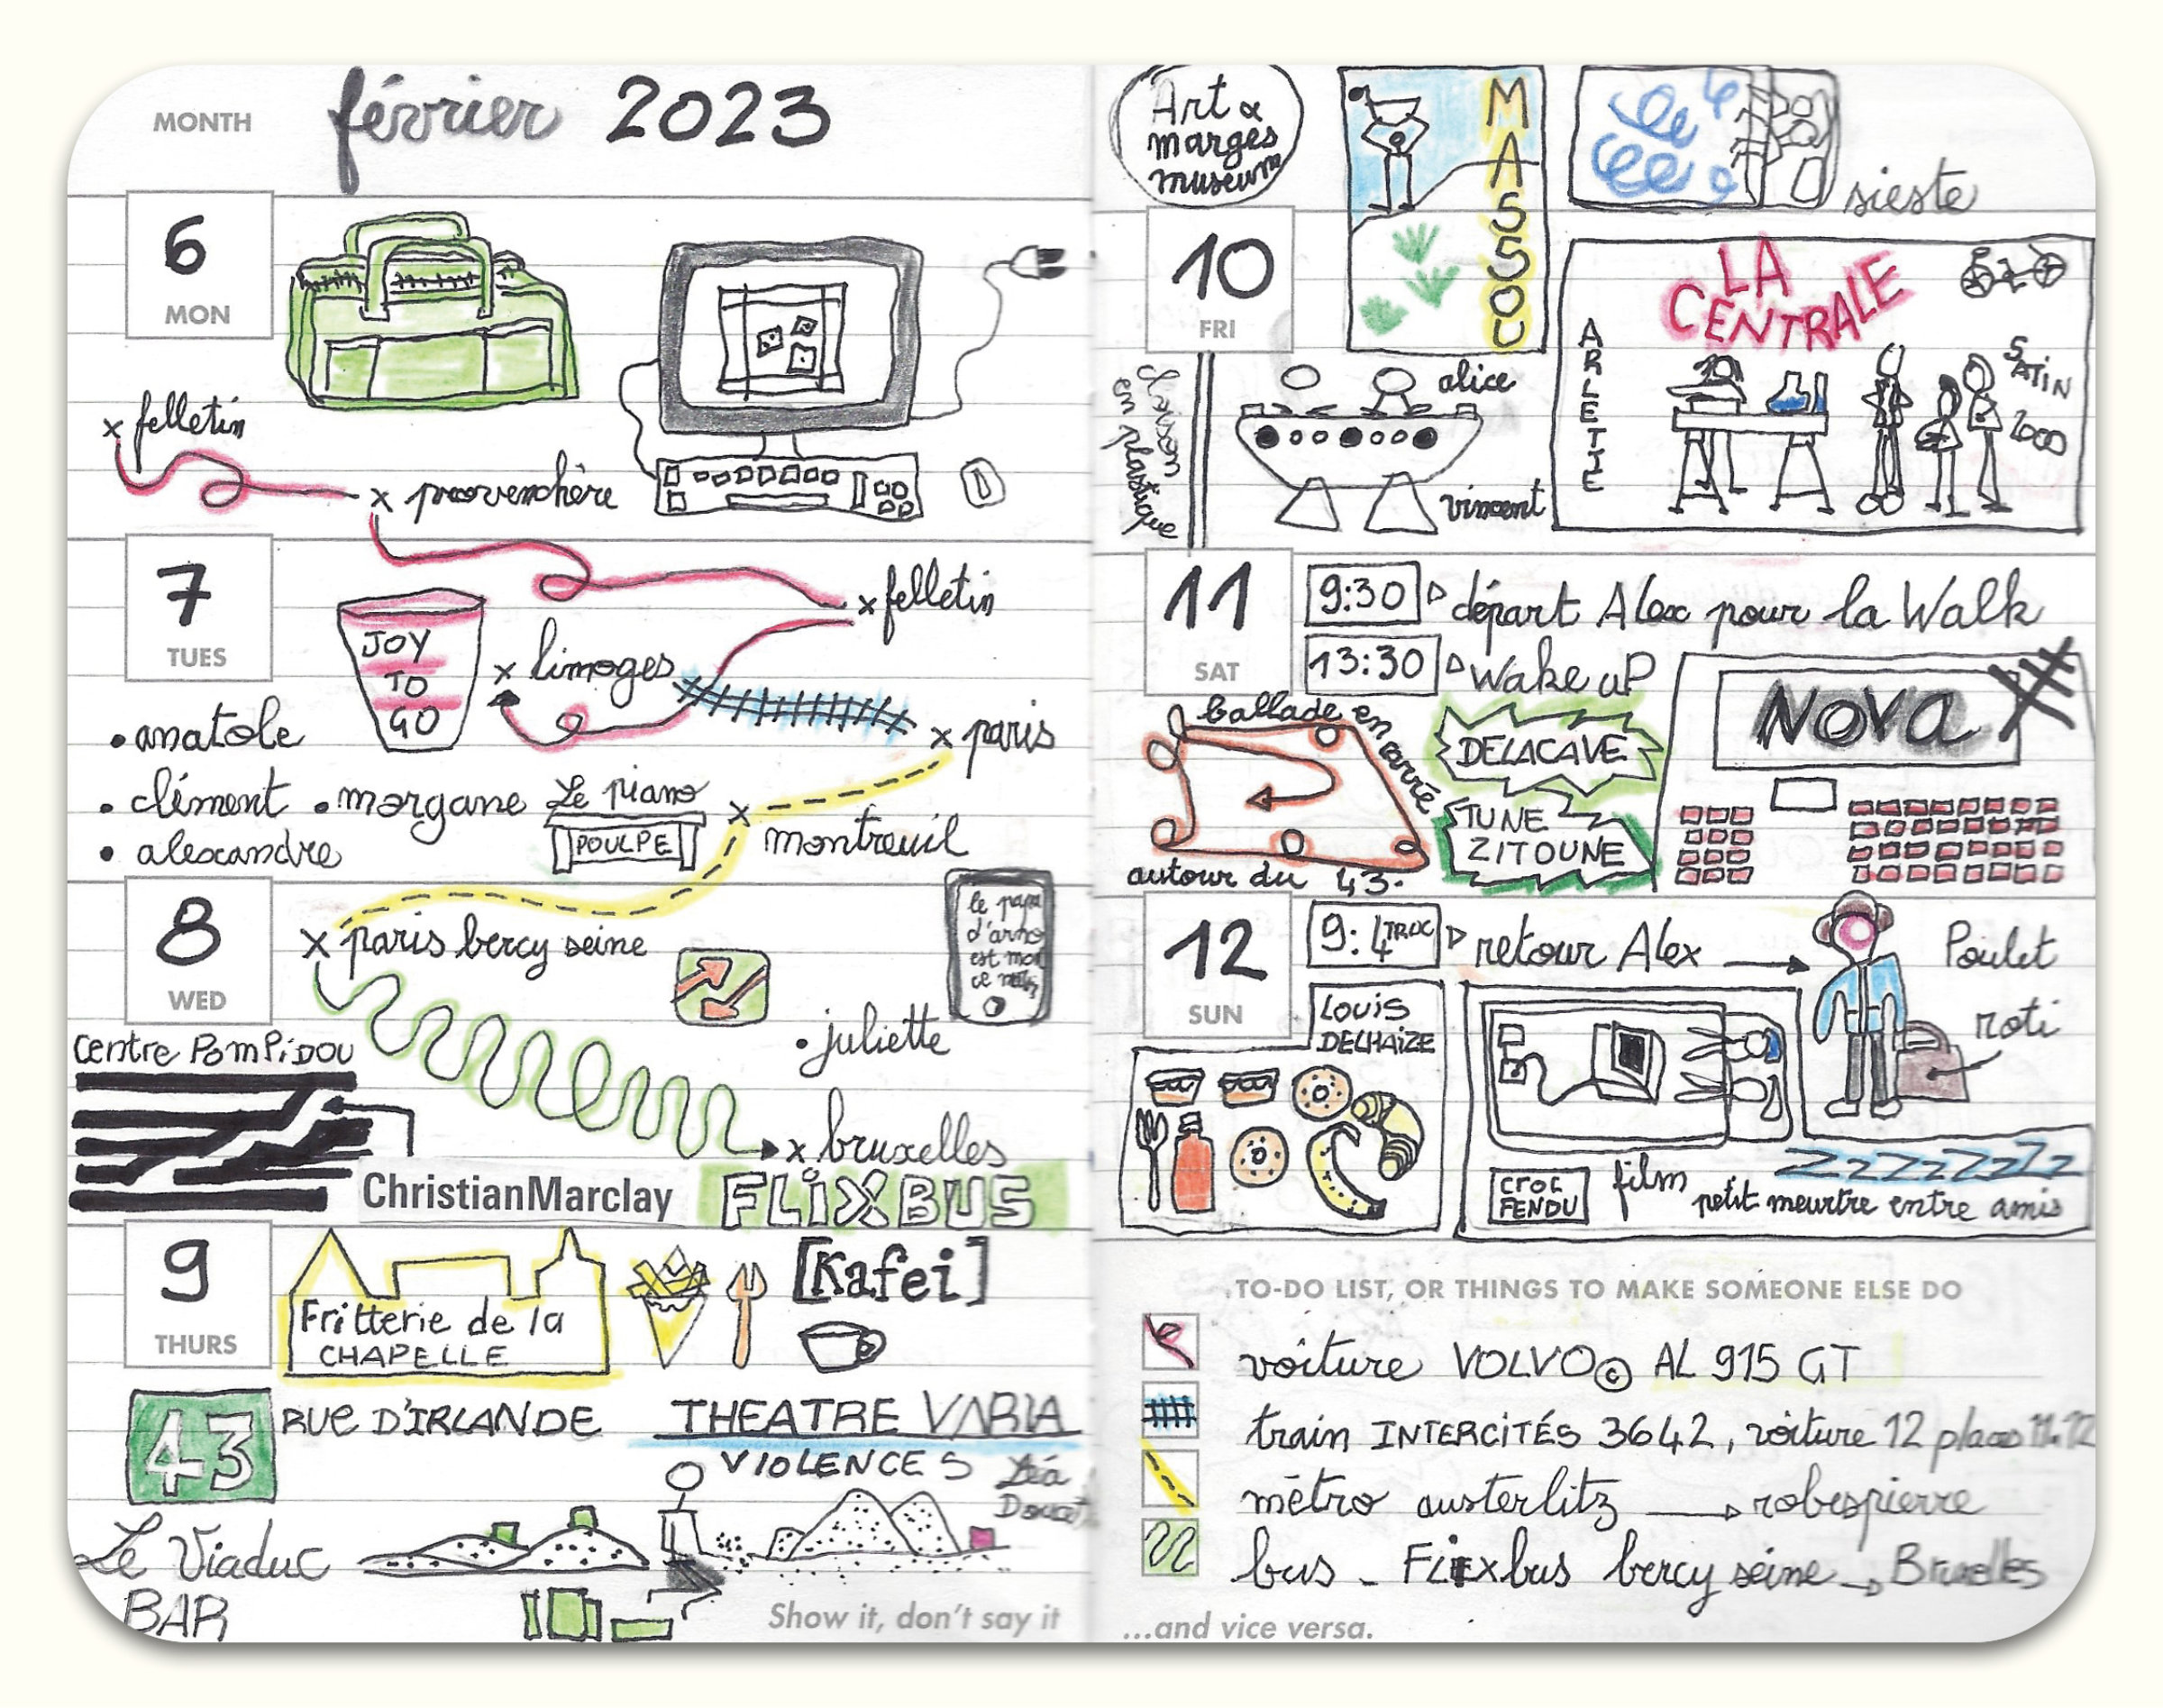 MONTH
février 2023
6
MON
felletin
provenchère
7
TUES
felletin
JOY
TO
GO
limoges
paris
• anatole
• clément
• morgane
• alexandre
Le piano
POULPE
montreuil
8
WED
paris bercy seine
le papa
d'arno
est
ce
• juliette
Centre POMPiDOU
bruxelles
ChristianMarclay
FLiXBUS
9
THURS
Fritterie de la
CHAPELLE
[Kafei]
43
RUE D'IRLANDE
THEATRE VARIA
VIOLENCES
Léa
Le Viaduc
BAR
Show it, don't say it
Art &
marges
museum
MASSOU
sieste
10
FRI
en plastique
alice
vincent
LA
CENTRALE
ARLETTE
SATIN
2000
11
SAT
9:30 départ Alex pour la Walk
13:30 Wake uP
ballade en carré
autour du 43.
DELACAVE
TUNE
ZITOUNE
NOVA
12
SUN
9:4TRUC retour Alex
Poulet
roti
LOUiS
DELHAiZE
CROC
FENDU
film
zzzzzzzz
petit meurtre entre amis
TO-DO LIST, OR THINGS TO MAKE SOMEONE ELSE DO
voiture VOLVO© AL 915 GT
train INTERCITÉS 3642, voiture 12 places 11.12
métro austerlitz → robespierre
bus - FLiXbus bercy seine → Bruxelles
...and vice versa.